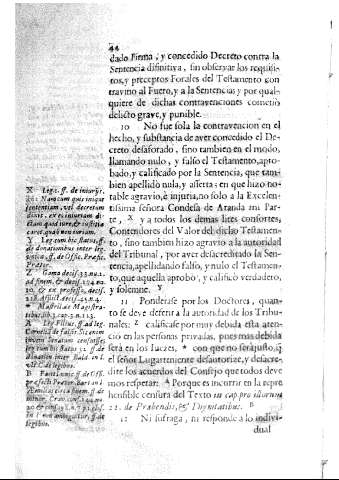 44
dado Firma, y concedido Decreto contra la
Sentencia difinitiva, sin observar los requisi-
tos, y preceptos Forales del Testamento con
travino al Fuero, y a la Sentencias y por qual-
quiere de dichas contravenciones cometiò
delicto grave, y punible.
10 No fue sola la contravencion en el
hecho, y substancia de aver concedido el De-
creto desaforado, sino tambien en el modo,
llamando nulo, y falso el Testamento, apro-
bado, y calificado por la Sentencia, que tam-
bien apellidò nula, y en que hizo no-
table agravio, è injuria, no solo a la Excelen-
tissima señora Condesa de Aranda mi Par-
te, X y a todos los demas lites consortes,
Contendores del Valor del dicho Testamento
, sino tambien hizo agravio a la autoridad
del Tribunal, por aver desacreditado la Sen-
tencia, apellidando falso, y nulo el Testamen-
to, que aquella aprobò, y calificò verdadero,
y solemne. Y
11 Ponderase por los Doctores, quan-
to se deve deferir a la autoridad de los Tribu-
nales: Z calificase por muy debida esta aten-
cion en las personas privadas, pues mas debida
serà en los Iuezes, * con que no seria justo, q̃
el señor Lugarteniente desautorize, y desacre-
dite los acuerdos del Consejo que todos deve
mos respetar: A Porque es incurrir en la repre
hensible censura del Texto in cap. pro illorum
22. de Præbendis, & Dignitatibus. B
12 Ni sufraga, ni responde a lo indivi-
dual
X Leg. ff. de iniurijs,
ibi: Nam cum quis inique
sententiam, vel decretum
dixit, ex eo iniuriam di-
ctam quod iure, & iustitia
caret, quod non
Y Leg. cum hic status, ff.
de donationibus inter
ff. de Offic. Præsid.
Prætor.
Z Gama decis.
ad finem, & decis.
30. & ex professo, decis.
n. 4.
* Mastrill. de Magistra-
tibus, lib. 3. cap.
A Leg. Fillius, ff. ad leg.
Cornel. de falsis
C. de legibus.
legibus.